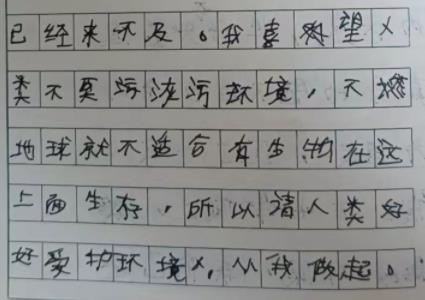 已经来不及。我喜望人
类不要污染污环境，不然
地球就不适合有生物在这
上面生存，所以请人类好
好爱护环境，从我做起。